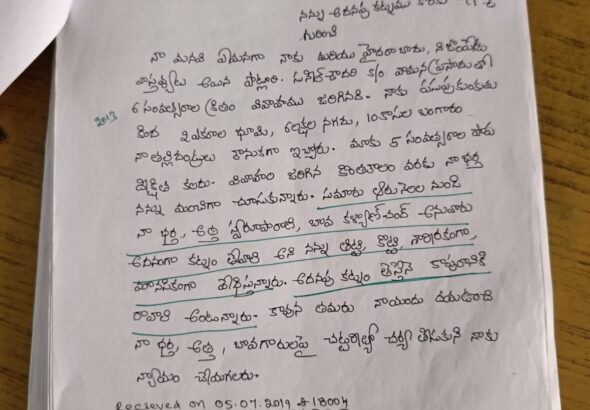 నన్ను అదనపు కట్నము
గురించి
నా మనవి ఏమనగా నాకు మరియు హైదరాబాదు,
వాస్తవ్యులు అయిన పొట్లూరి. సునీల్ చౌదరి s/o. వామన ప్రసాదు తో
2013 6 సంవత్సరాల క్రితం వివాహము జరిగినది. నాకు పసుపు కుంకుమ
క్రింద 2 ఎకరాల భూమి, 6 లక్షల నగదు, 10 కాసుల బంగారం
నా తల్లిదండ్రులు కానుకగా ఇచ్చారు. మాకు 5 సంవత్సరాల పాప
దీక్షిత కలదు. వివాహం జరిగిన కొంతకాలం వరకు నా భర్త
నన్ను మంచిగా చూసుకున్నారు. సుమారు ఆరునెలల నుండి
నా భర్త, అత్త స్వరూపారాణి, బావ కళ్యాణ్ చంద్ అనువారు
అదనంగా కట్నం తేవాలి అని నన్ను తిట్టి, కొట్టి శారీరకంగా,
మానసికంగా వేధిస్తున్నారు. అదనపు కట్నం తెస్తేనే కాపురానికి
రావాలి అంటున్నారు. కావున తమరు నాయందు దయఉంచి
నా భర్త, అత్త, బావగారులపై చట్టరిత్యా చర్య తీసుకుని నాకు
న్యాయం చేయగలరు.
Recieved on 05.07.2019 @ 1800 h